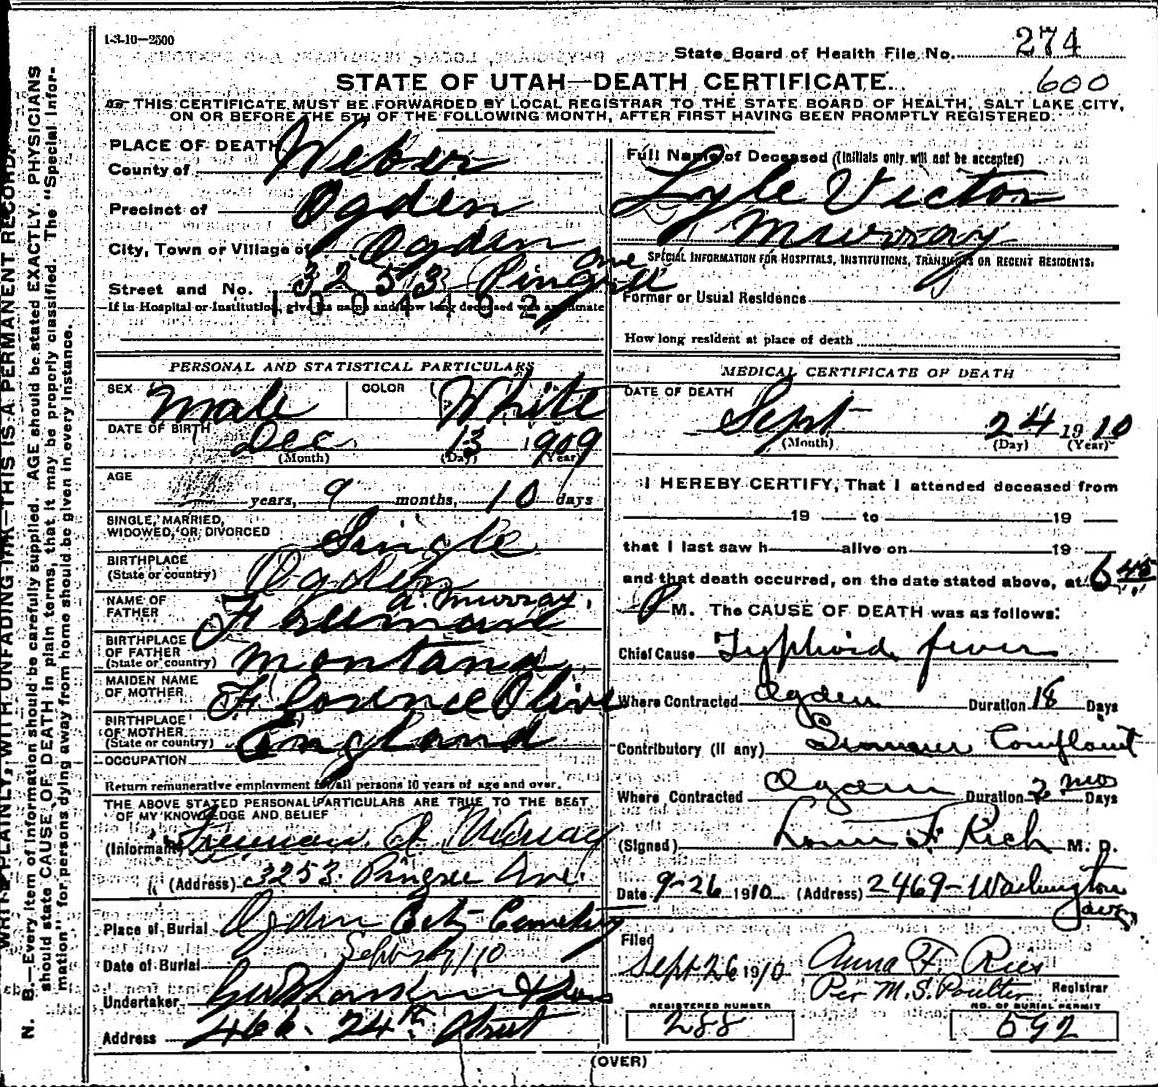 1-3-10—2500
State Board of Health File No. 274
600
STATE OF UTAH—DEATH CERTIFICATE.
THIS CERTIFICATE MUST BE FORWARDED BY LOCAL REGISTRAR TO THE STATE BOARD OF HEALTH, SALT LAKE CITY,
ON OR BEFORE THE 5TH OF THE FOLLOWING MONTH, AFTER FIRST HAVING BEEN PROMPTLY REGISTERED.
PLACE OF DEATH
County of Weber
Precinct of Ogden
City, Town or Village of Ogden
Street and No. 3253 Pingree Ave
If in Hospital or Institution, give its name and how long deceased was an inmate
1004492
Full Name of Deceased (Initials only will not be accepted)
Lyle Victor
Murray
SPECIAL INFORMATION FOR HOSPITALS, INSTITUTIONS, TRANSIENTS OR RECENT RESIDENTS.
Former or Usual Residence
How long resident at place of death
PERSONAL AND STATISTICAL PARTICULARS
SEX Male COLOR White
DATE OF BIRTH Dec 13 1909
(Month) (Day) (Year)
AGE
years, 9 months, 10 days
SINGLE, MARRIED,
WIDOWED, OR DIVORCED Single
BIRTHPLACE
(State or country) Ogden
NAME OF
FATHER Freemont A. Murray.
BIRTHPLACE
OF FATHER
(State or country) Montana
MAIDEN NAME
OF MOTHER Florence Olive
BIRTHPLACE
OF MOTHER
(State or country) England
OCCUPATION
Return remunerative employment for all persons 10 years of age and over.
THE ABOVE STATED PERSONAL PARTICULARS ARE TRUE TO THE BEST
OF MY KNOWLEDGE AND BELIEF
(Informant) Freeman A Murray
(Address) 3253 Pingree Ave.
Place of Burial Ogden City Cemetery
Date of Burial Sept 27/10
Undertaker
Address 466. 24th Street
MEDICAL CERTIFICATE OF DEATH
DATE OF DEATH
Sept 24 1910
(Month) (Day) (Year)
I HEREBY CERTIFY, That I attended deceased from
19 to 19
that I last saw h alive on 19
and that death occurred, on the date stated above, at 6 45
P M. The CAUSE OF DEATH was as follows:
Chief Cause Typhoid fever
Where Contracted Ogden Duration 18 Days
Contributory (if any) Summer Complaint
Where Contracted Ogden Duration 2 mos Days
(Signed) F. Rich M. D.
Date 9-26 1910 (Address) 2469-Washington
Filed
Sept 26 1910 Anna F Ries
Per M.S. Poulter Registrar
REGISTERED NUMBER
288
NO. OF BURIAL PERMIT
592
(OVER)
WRITE PLAINLY, WITH UNFADING INK—THIS IS A PERMANENT RECORD.
N. B.—Every item of information should be carefully supplied. AGE should be stated EXACTLY. PHYSICIANS
should state CAUSE OF DEATH in plain terms, that it may be properly classified. The "Special Infor-
mation" for persons dying away from home should be given in every instance.